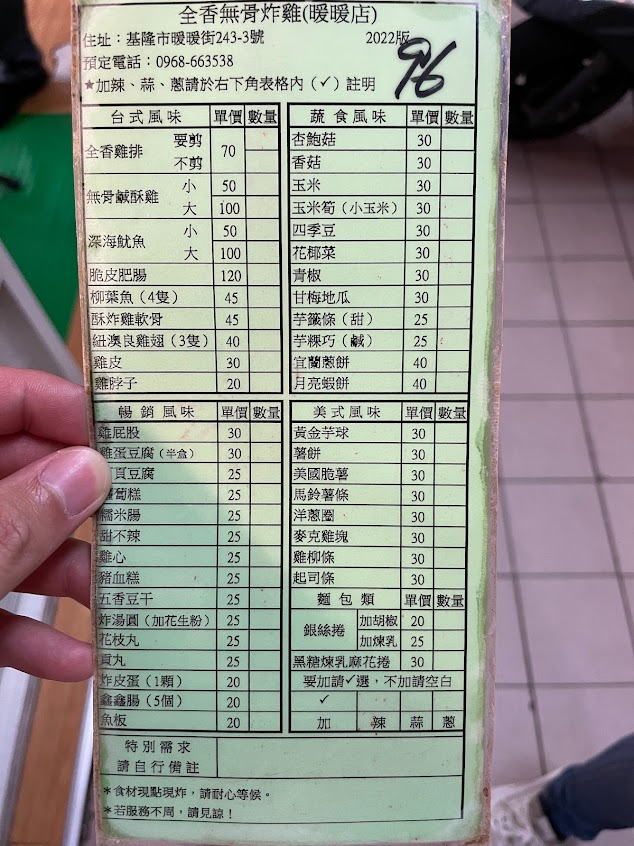 全香無骨炸雞(暖暖店)
住址：基隆市暖暖街243-3號 2022版
預定電話：0968-663538
96
★加辣、蒜、蔥請於右下角表格內（✓）註明
台式風味 單價 數量
全香雞排 要剪 不剪 70
無骨鹹酥雞 小 50
大 100
深海魷魚 小 50
大 100
脆皮肥腸 120
柳葉魚（4隻） 45
酥炸雞軟骨 45
紐澳良雞翅（3隻） 40
雞皮 30
雞脖子 20
蔬食風味 單價 數量
杏鮑菇 30
香菇 30
玉米 30
玉米筍（小玉米） 30
四季豆 30
花椰菜 30
青椒 30
甘梅地瓜 30
芋籤條（甜） 25
芋粿巧（鹹） 25
宜蘭蔥餅 40
月亮蝦餅 40
暢銷風味 單價 數量
雞屁股 30
雞蛋豆腐（半盒） 30
頁豆腐 25
蔔糕 25
糯米腸 25
甜不辣 25
雞心 25
豬血糕 25
五香豆干 25
炸湯圓（加花生粉） 25
花枝丸 25
貢丸 25
炸皮蛋（1顆） 20
鑫鑫腸（5個） 20
魚板 20
美式風味 單價 數量
黃金芋球 30
薯餅 30
美國脆薯 30
馬鈴薯條 30
洋蔥圈 30
麥克雞塊 30
雞柳條 30
起司條 30
麵包類 單價 數量
銀絲捲 加胡椒 20
加煉乳 25
黑糖煉乳麻花捲 30
要加請✓選，不加請空白
✓
加 辣 蒜 蔥
特別需求
請自行備註
＊食材現點現炸，請耐心等候。
＊若服務不周，請見諒！